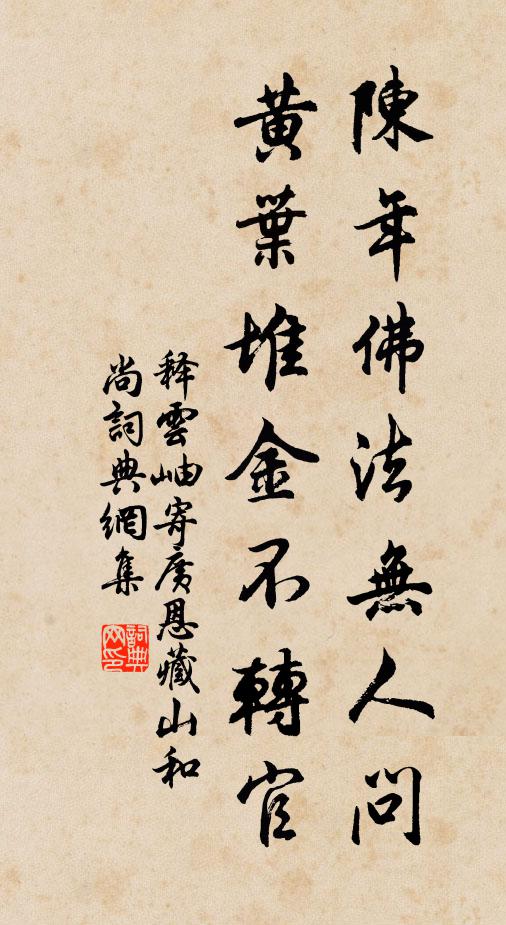 陳年佛法無人問
黃葉堆金不轉官
释雲岫寄廣恩藏山和
尚詞典網集
詞典
网印